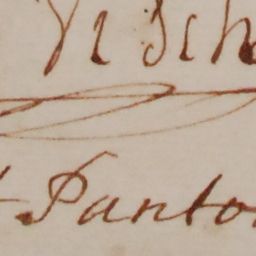 Visch
Panto